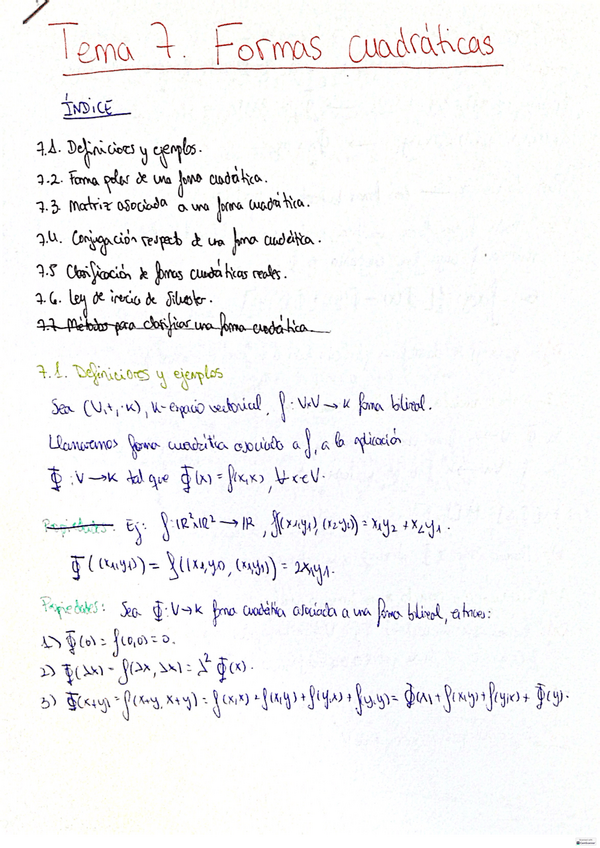 Tema 7. Formas cuadráticas
ÍNDICE
7.1. Definiciones y ejemplos.
7.2. Forma polar de una forma cuadrática.
7.3. Matriz asociada a una forma cuadrática.
7.4. Conjugación respecto de una forma cuadrática.
7.5 Clasificación de formas cuadráticas reales.
7.6. Ley de inercia de Silvester.
7.7. Métodos para clasificar una forma cuadrática.
7.1. Definiciones y ejemplos
Sea (V,+,·K), K-espacio vectorial, f: V×V → K forma bilineal.
Llamaremos forma cuadrática asociada a f, a la aplicación
Φ: V → K tal que Φ(x) = f(x,x), ∀x∈V.
Propiedades: Ej: f: ℝ²×ℝ² → ℝ, f((x₁,y₁),(x₂,y₂)) = x₁y₂ + x₂y₁.
Φ((x₁,y₁)) = f((x₁,y₁),(x₁,y₁)) = 2x₁y₁.
Propiedades: Sea Φ: V → K forma cuadrática asociada a una forma bilineal, entonces:
1) Φ(0) = f(0,0) = 0.
2) Φ(λx) = f(λx, λx) = λ² Φ(x).
3) Φ(x+y) = f(x+y, x+y) = f(x,x) + f(x,y) + f(y,x) + f(y,y) = Φ(x) + f(x,y) + f(y,x) + Φ(y).